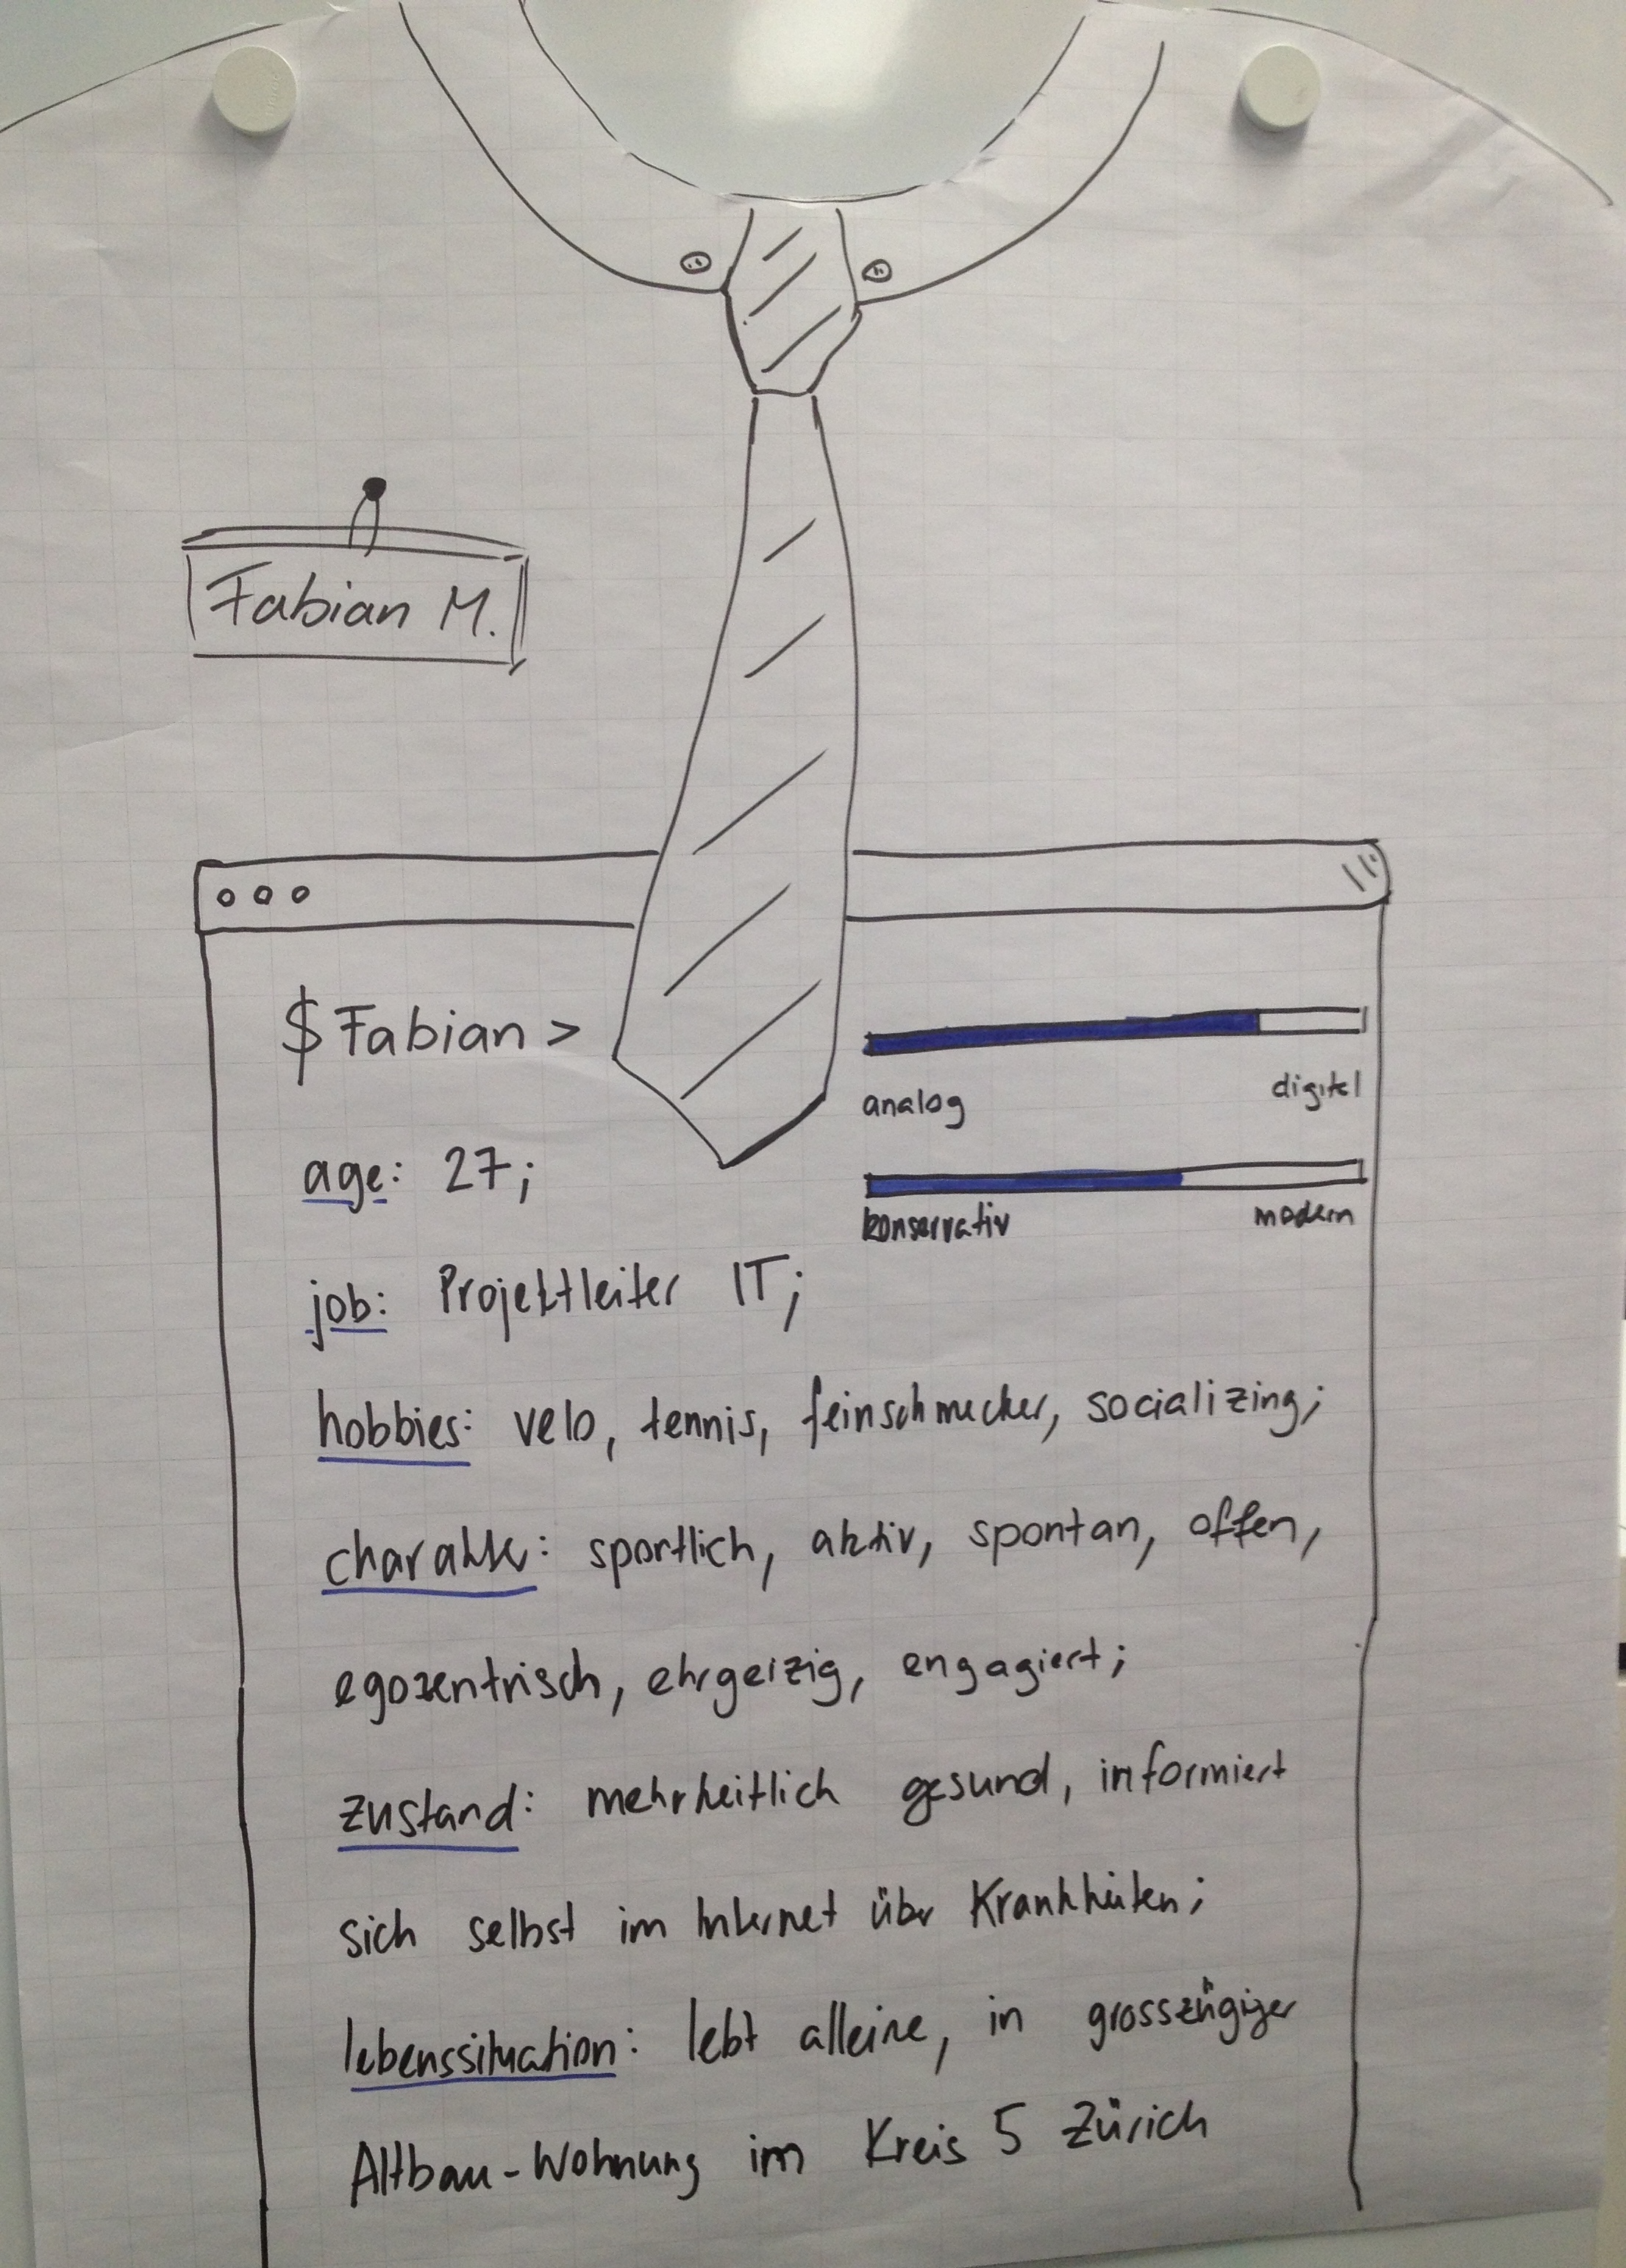 Fabian M.
$ Fabian >
analog digital
age: 27;
konservativ modern
job: Projektleiter IT;
hobbies: velo, tennis, feinschmecker, socializing;
charakter: sportlich, aktiv, spontan, offen,
egozentrisch, ehrgeizig, engagiert;
zustand: mehrheitlich gesund, informiert
sich selbst im Internet über Krankheiten;
lebenssituation: lebt alleine, in grosszügiger
Altbau-Wohnung im Kreis 5 Zürich